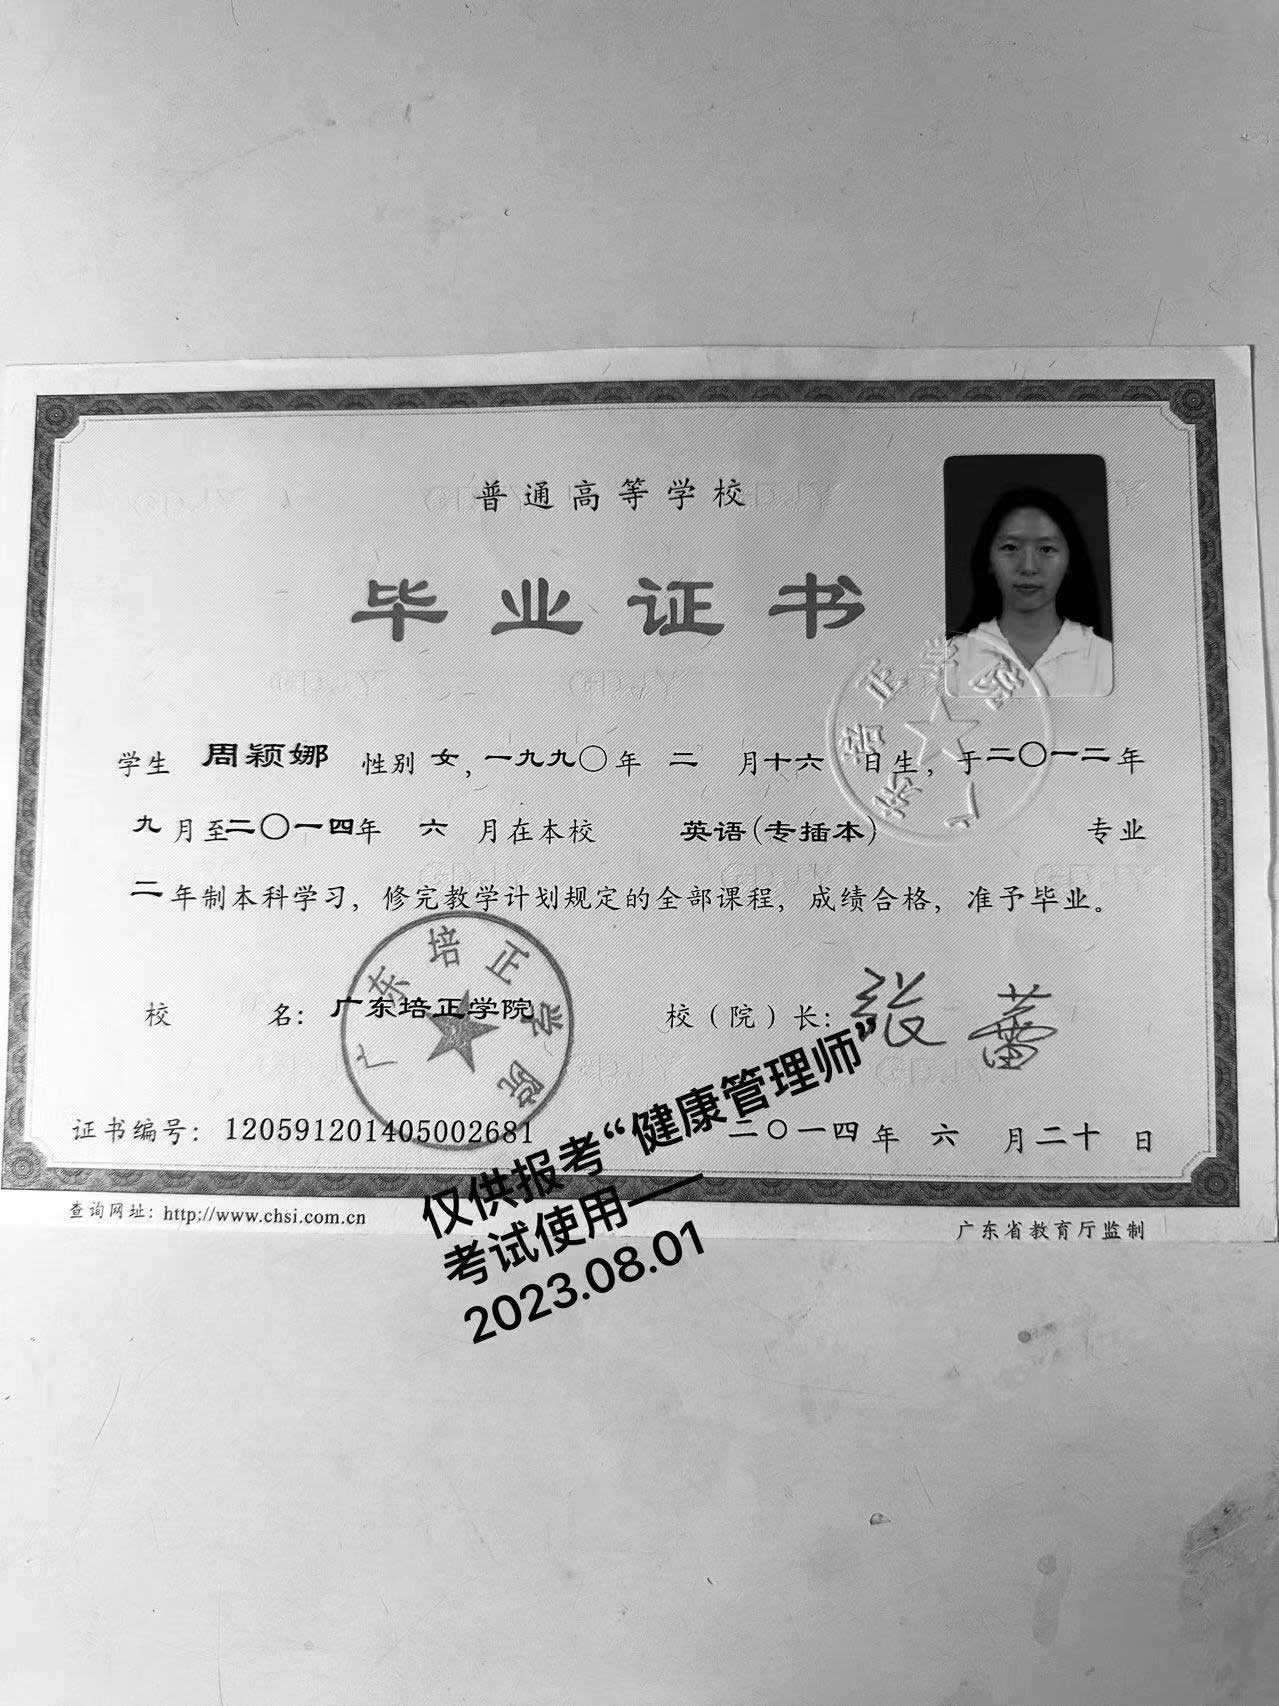 普通高等学校
毕业证书
学生 周颖娜 性别 女，一九九〇年 二 月十六 日生，于二〇一二年
九 月至二〇一四年 六 月在本校 英语(专插本) 专业
二年制本科学习，修完教学计划规定的全部课程，成绩合格，准予毕业。
广东培正学院
广东培正学院
校 名：广东培正学院 校（院）长：张蕾
证书编号：120591201405002681 二〇一四年 六 月二十 日
查询网址：http://www.chsi.com.cn 广东省教育厅监制
仅供报考“健康管理师”
考试使用——
2023.08.01